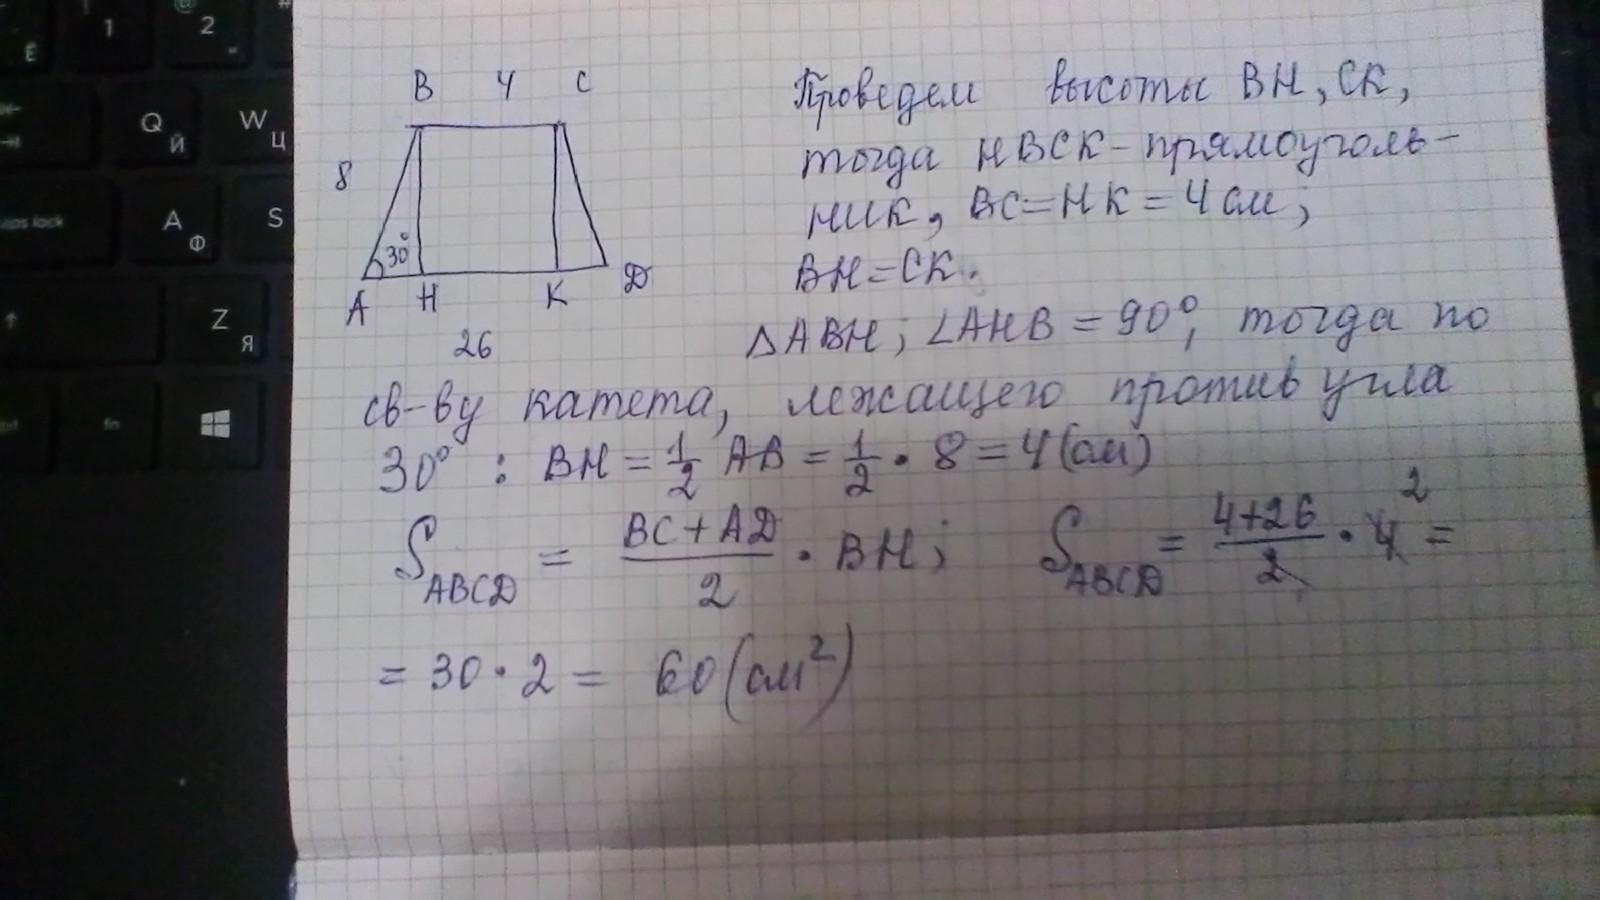 Ё 1 @ 2 "
Q Й W Ц
caps lock A Ф S
Z Я
fn
B 4 C
8
30°
A H K D
26
Проведем высоты BH, CK,
тогда HBCK - прямоуголь-
ник, BC = HK = 4 см;
BH = CK.
△ABH; ∠AHB = 90°, тогда по
св-ву катета, лежащего против угла
30° : BH = 1/2 AB = 1/2 · 8 = 4 (см)
S_ABCD = (BC + AD)/2 · BH; S_ABCD = (4+26)/2 · 4 2 =
= 30 · 2 = 60 (см²)